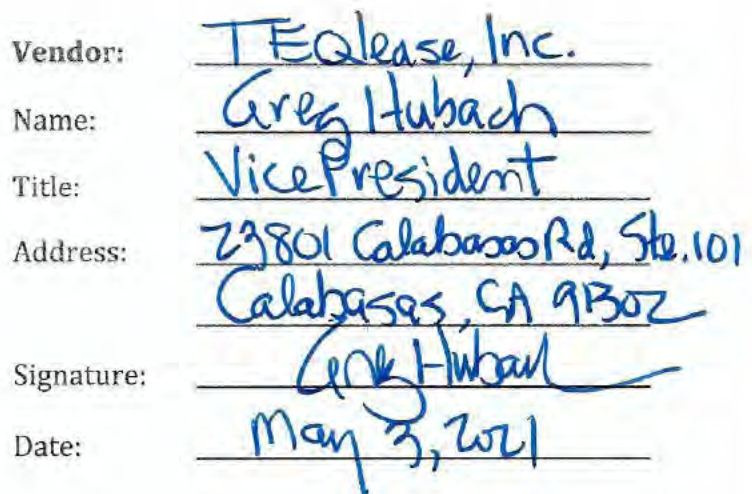 Vendor: TEQlease, Inc.
Name: Greg Hubach
Title: Vice President
Address: 23801 Calabasas Rd, Ste. 101
Calabasas, CA 91302
Signature: Greg Hubach
Date: May 3, 2021